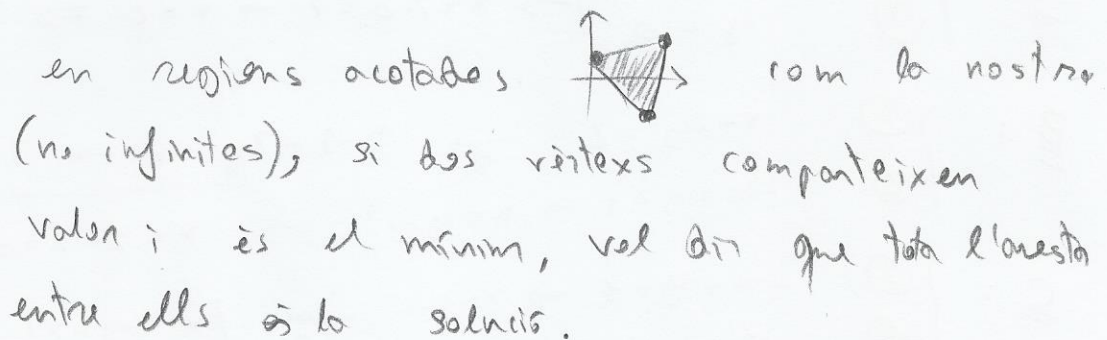 en regions acotades com la nostra
(no infinites), si dos vèrtexs comparteixen
valor i és el mínim, vol dir que tota l'aresta
entre ells és la solució.